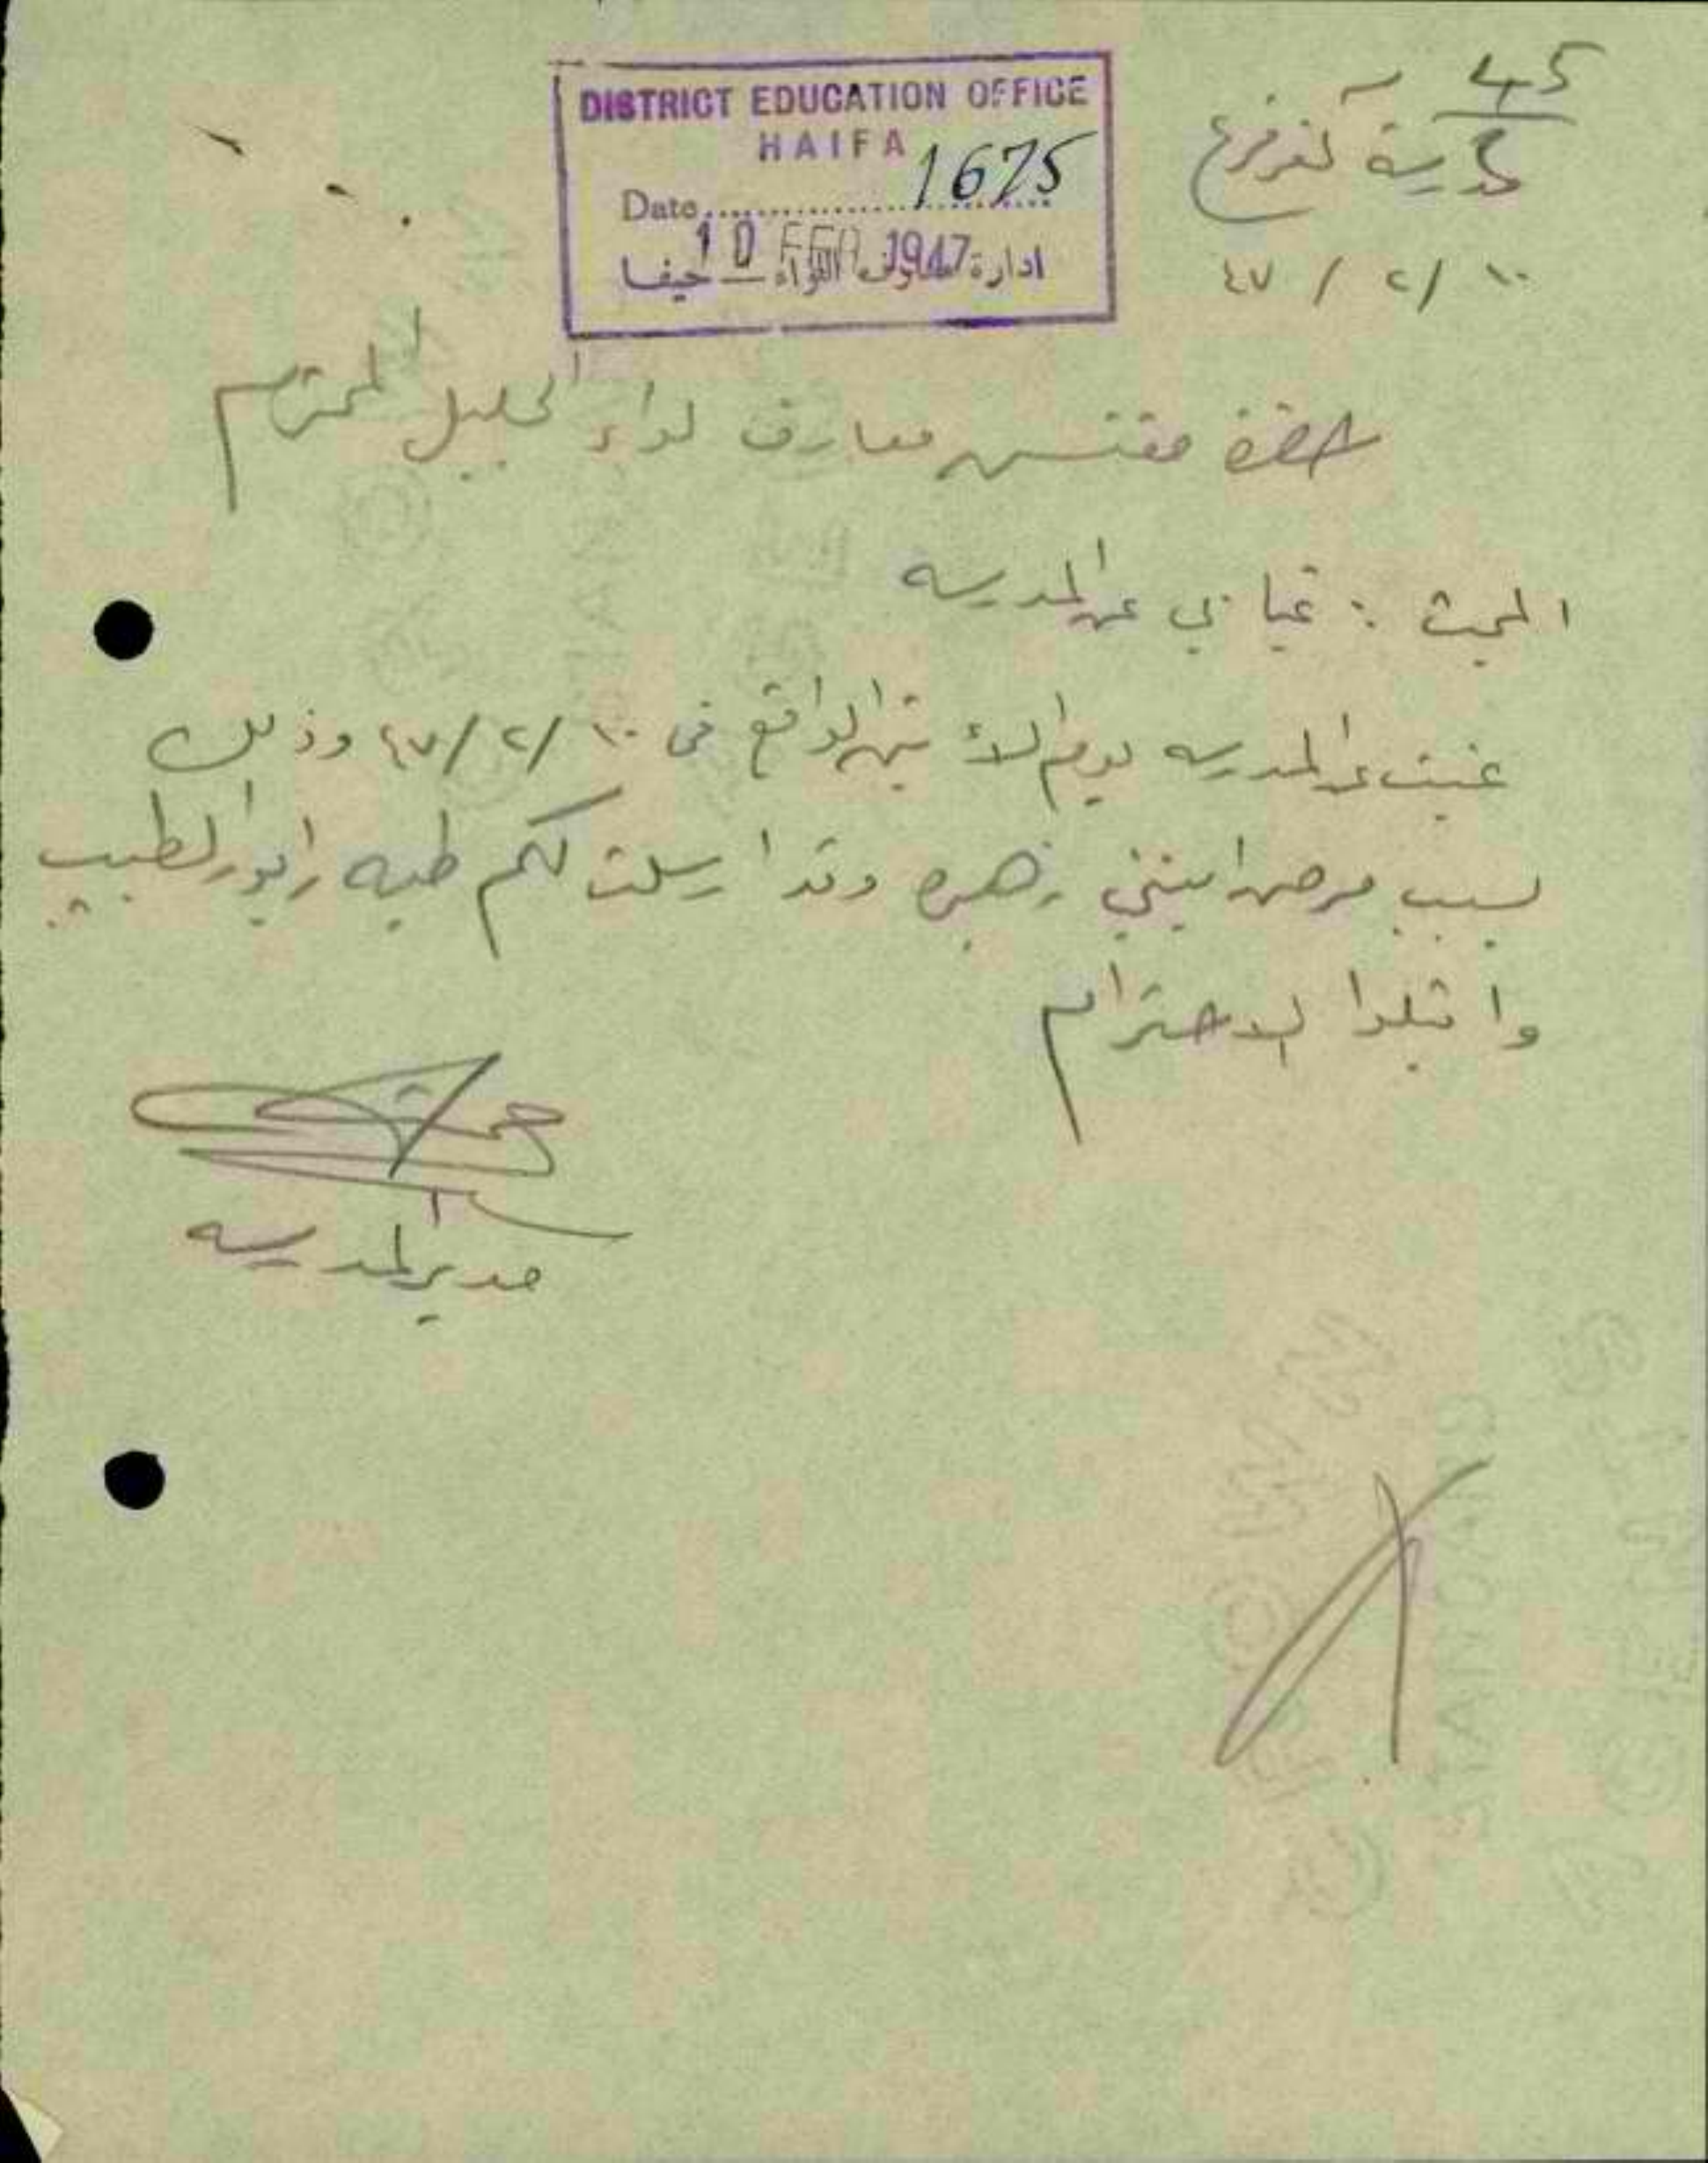 45
مدرسة كفر قرع
١٠ / ٢ / ٤٧
DISTRICT EDUCATION OFFICE
HAIFA
Date 1675
10 FEB 1947
ادارة معارف اللواء ـ حيفا
حضرة مفتش معارف لواء الجليل المحترم
المبحث : غيابي عن المدرسه
غبت عن المدرسه يوم الاثنين الواقع في ١٠ / ٢ / ٤٧ وذلك
بسبب مرض ابنتي زهره وقد ارسلت لكم طيه رابور الطبيب
واقبلوا الاحترام
مدير المدرسه